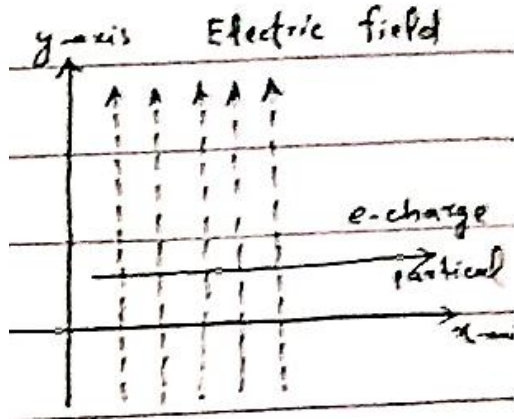 y-axis Electric field
e-charge
partical
x-axi